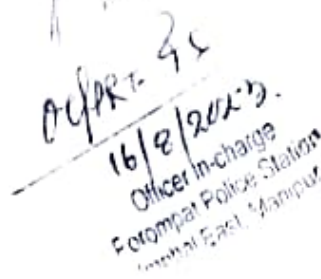 OC/PRT-PS
16/8/2023.
Officer in-charge
Porompat Police Station
Imphal East, Manipur